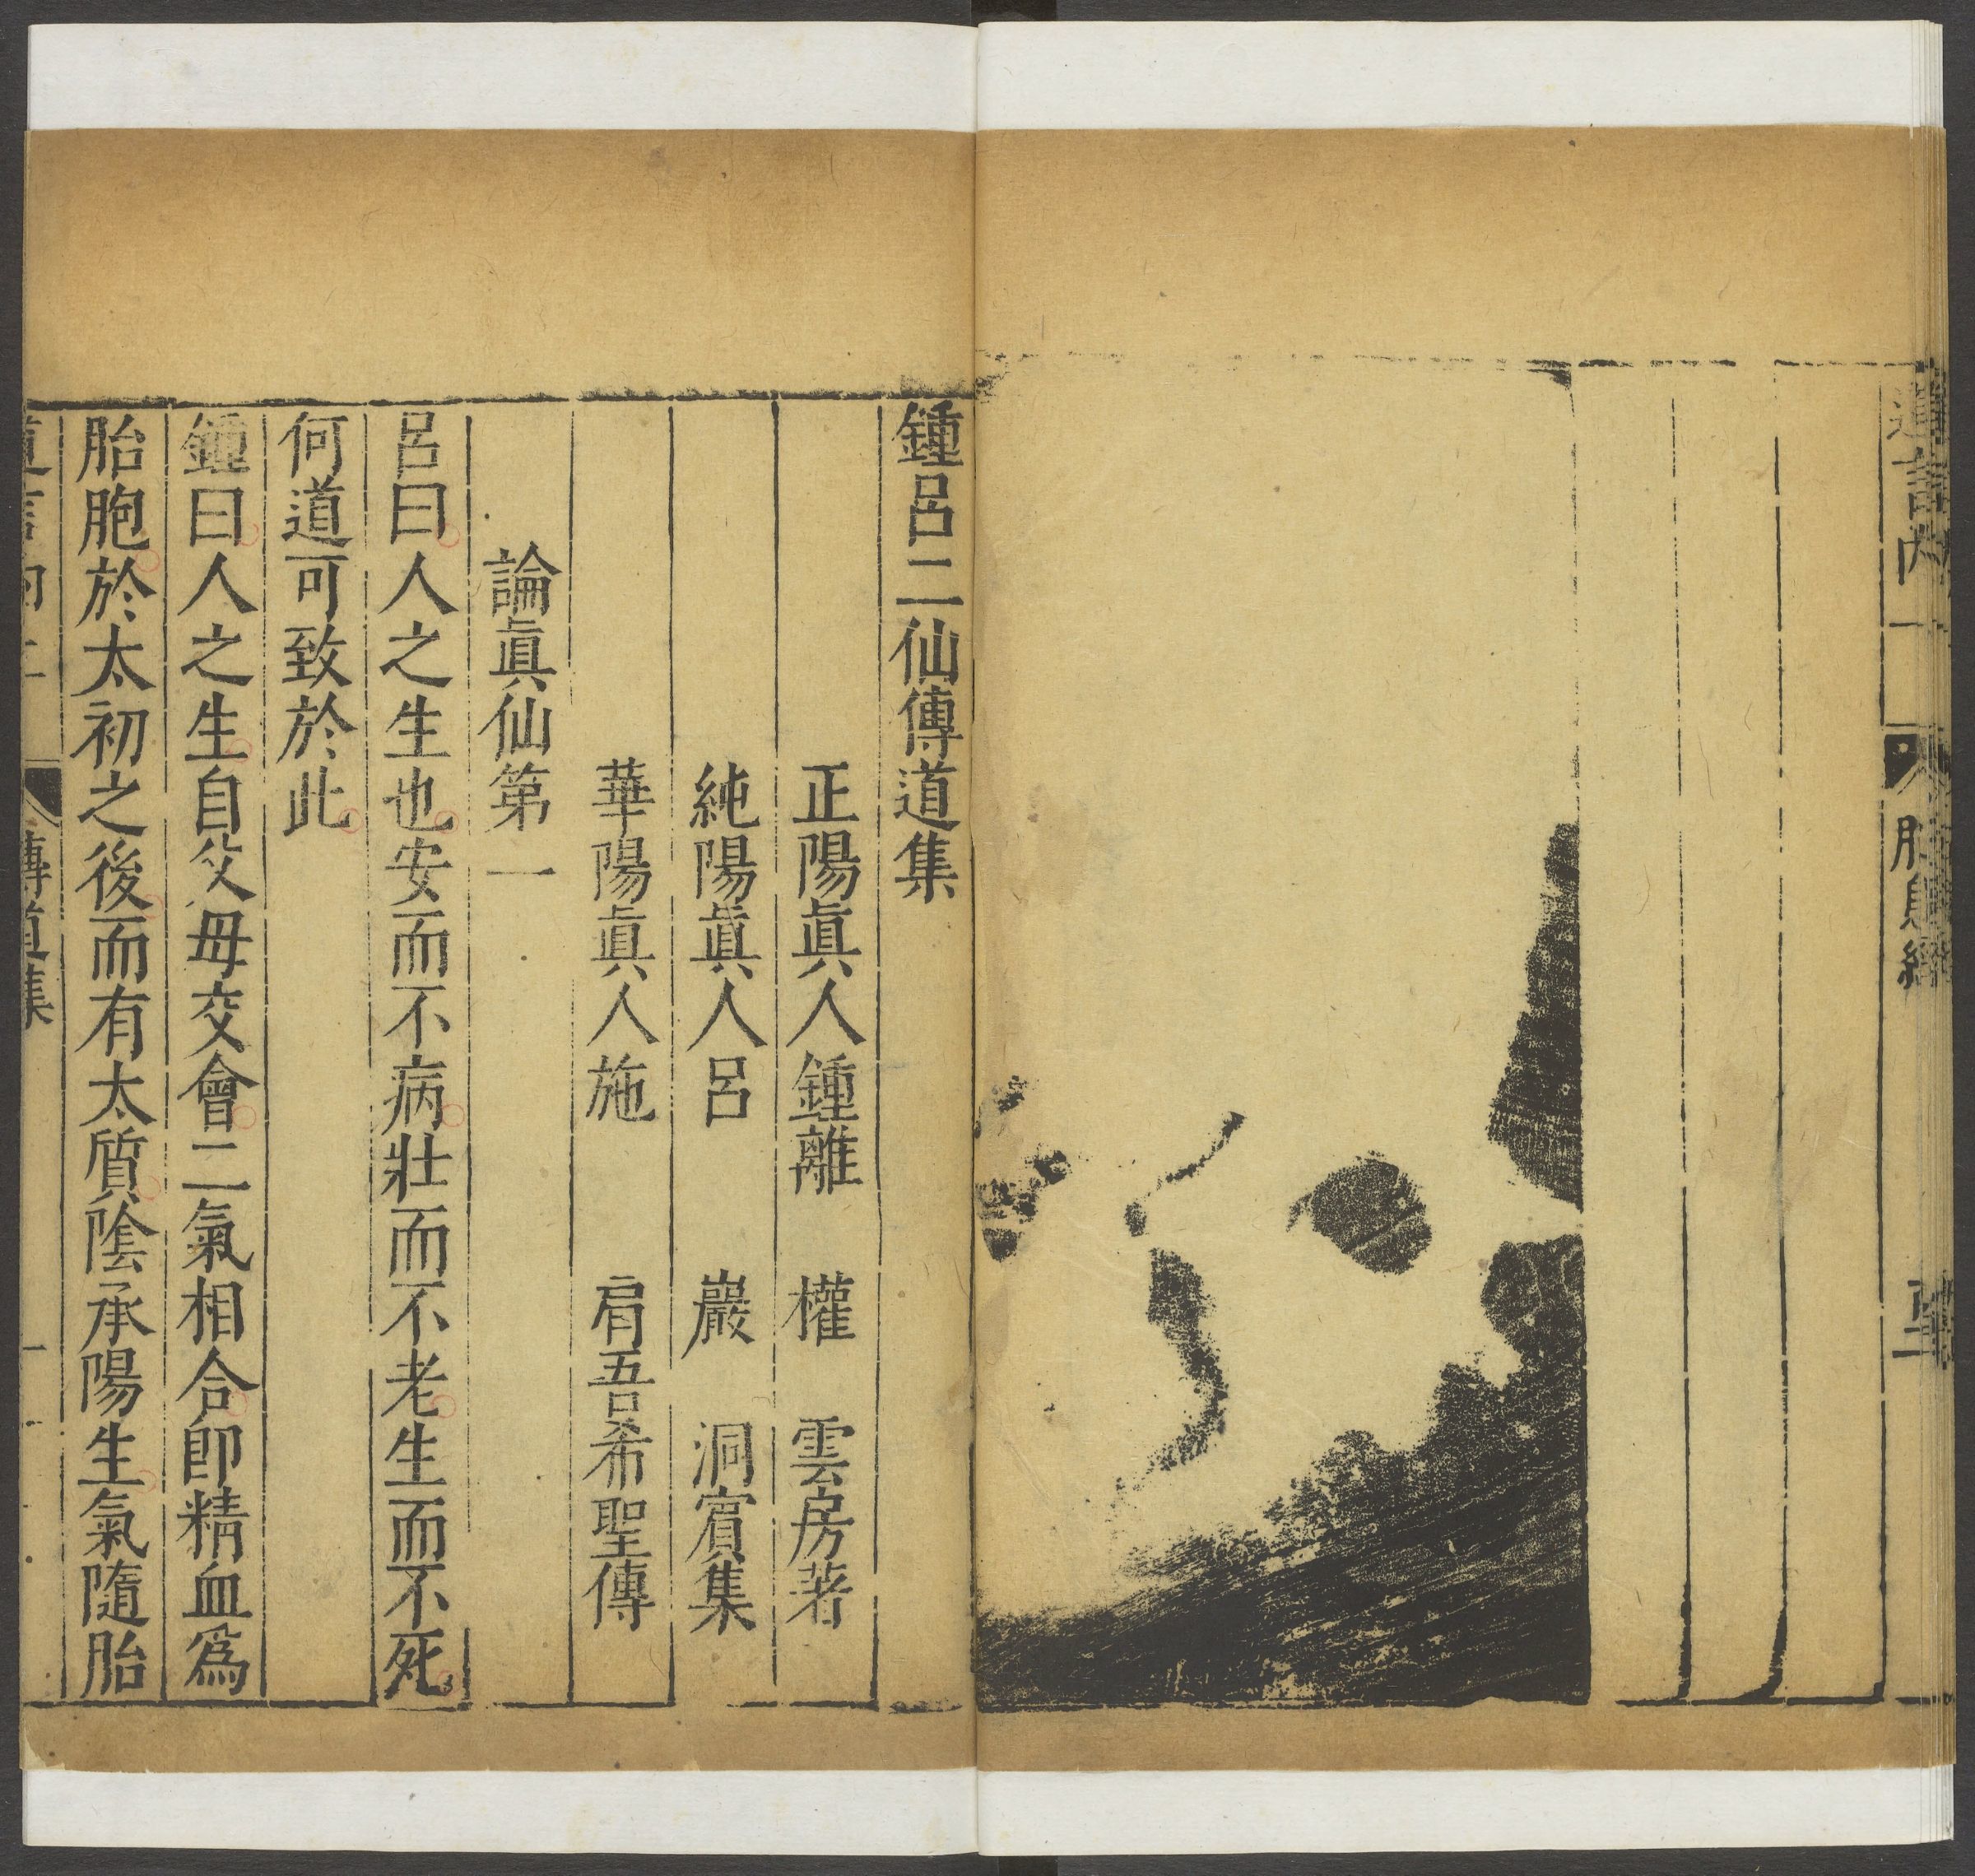 道言內
胎息經
鍾呂二仙傳道集
正陽眞人鍾離　權　雲房著
純陽眞人呂　巖　洞賓集
華陽眞人施　肩吾希聖傳
論眞仙第一
呂曰人之生也安而不病壯而不老生而不死
何道可致於此
鍾曰人之生自父母交會二氣相合卽精血爲
胎胞於太初之後而有太質陰承陽生氣隨胎
道言內
傳道集